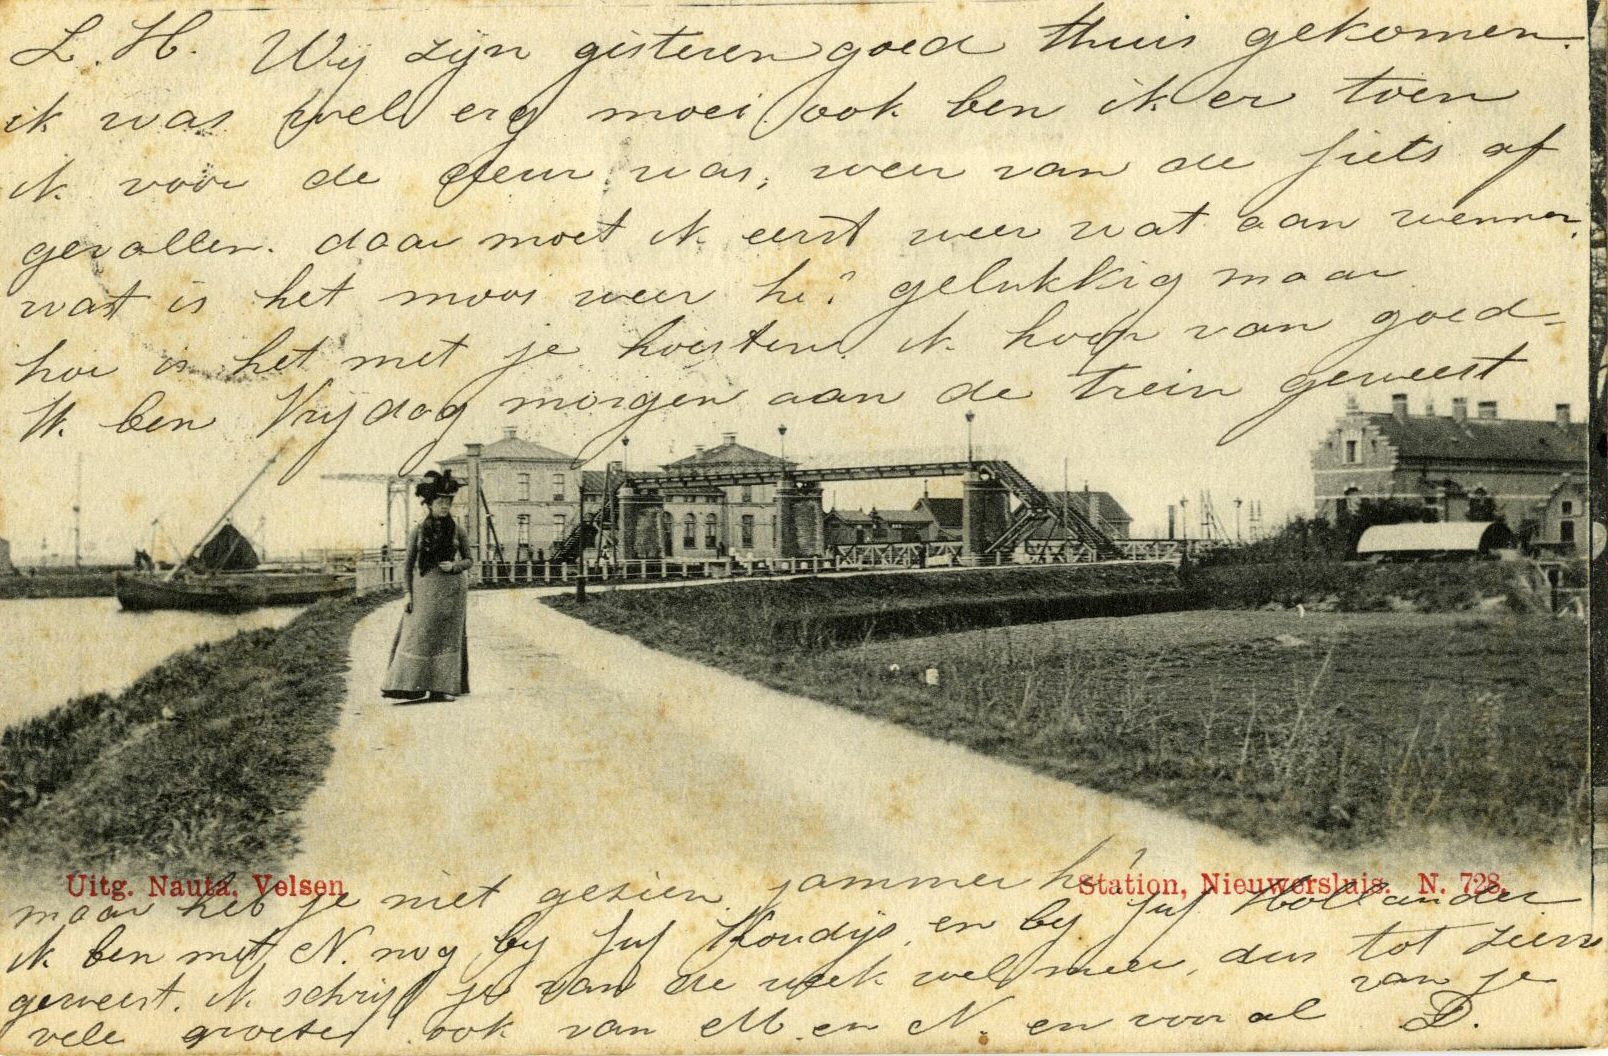 L. H. Wij zijn gisteren goed thuis gekomen.
ik was wel erg moei ook ben ik er toen
ik voor de deur was, weer van de fiets af
gevallen. daar moet ik eerst weer wat aan wennen.
wat is het moos weer hè? gelukkig maar
hoe is het met je hoesten. ik hoop van goed-
Ik ben Vrijdag morgen aan de trein geweest
Uitg. Nauta, Velsen
Station, Nieuwersluis. N. 728.
maar heb je niet gezien. jammer hè
ik ben met N. nog by Juf Koudijs, en by Juf Hollander
geweest. ik schrijf je van de week wel meer, dus tot ziens
vele groeten ook van M. en N. en vooral van je
D.